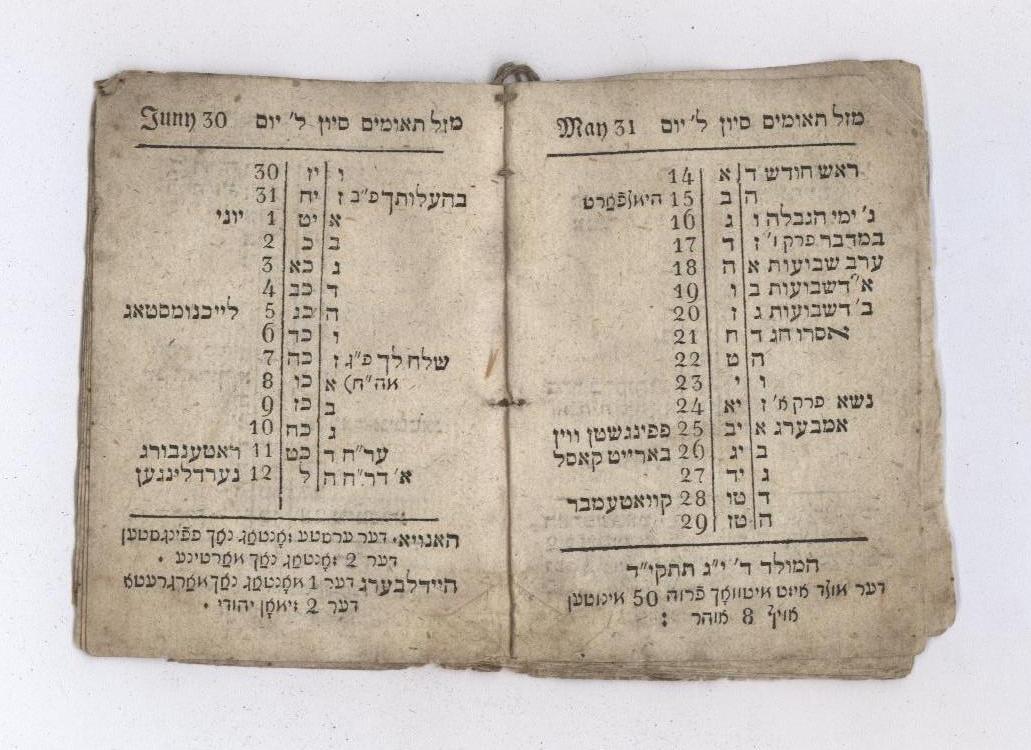 מזל תאומים סיון ל׳ יום May 31
ראש חודש ד א 14
ה ב 15 היאלפֿארט
ג׳ ימי הגבלה ו ג 16
במדבר פרק ו׳ ז ד 17
ערב שבועות א ה 18
א״דשבועות ב ו 19
ב׳ דשבועות ג ז 20
אסרו חג ד ח 21
ה ט 22
ו י 23
נשא פרק א׳ ז יא 24
אמבערג א יב 25 פפינגשטן ווין
ב יג 26 בארייט קאסל
ג יד 27
ד טו 28 קוואטעמבר
ה טז 29
המולד ד׳ י״ג תתקי״ד
דער מולד איזט מיטוואך פֿרוה 50 מינוטען
אויף 8 אוהר :
מזל תאומים סיון ל׳ יום Juny 30
ו יז 30
בהעלותך פ״ב ז יח 31
א יט 1 יוני
ב כ 2
ג כא 3
ד כב 4
ה כג 5 לייכנומסטאג
ו כד 6
שלח לך פ״ג ז כה 7
אה״ח) א כו 8
ב כז 9
ג כח 10
ער״ח ד כט 11 ראטענבורג
א׳ דר״ח ה ל 12 נערדלינגען
האנויא. דער ערסטע מאָנטאַג נאָך פפֿינגסטען
דער 2 מאָנטאַג נאָך מארטינע .
היידלבערג דער 1 מאָנטאַג נאָך מארגרעטא
דער 2 יהודי .